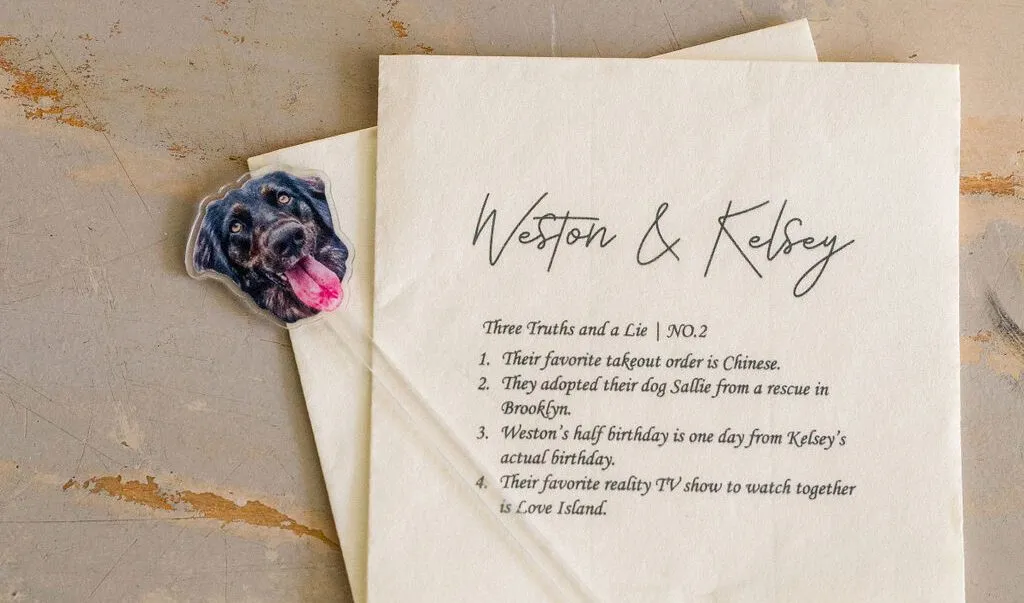 Weston & Kelsey
Three Truths and a Lie | NO.2
1. Their favorite takeout order is Chinese.
2. They adopted their dog Sallie from a rescue in
Brooklyn.
3. Weston's half birthday is one day from Kelsey's
actual birthday.
4. Their favorite reality TV show to watch together
is Love Island.